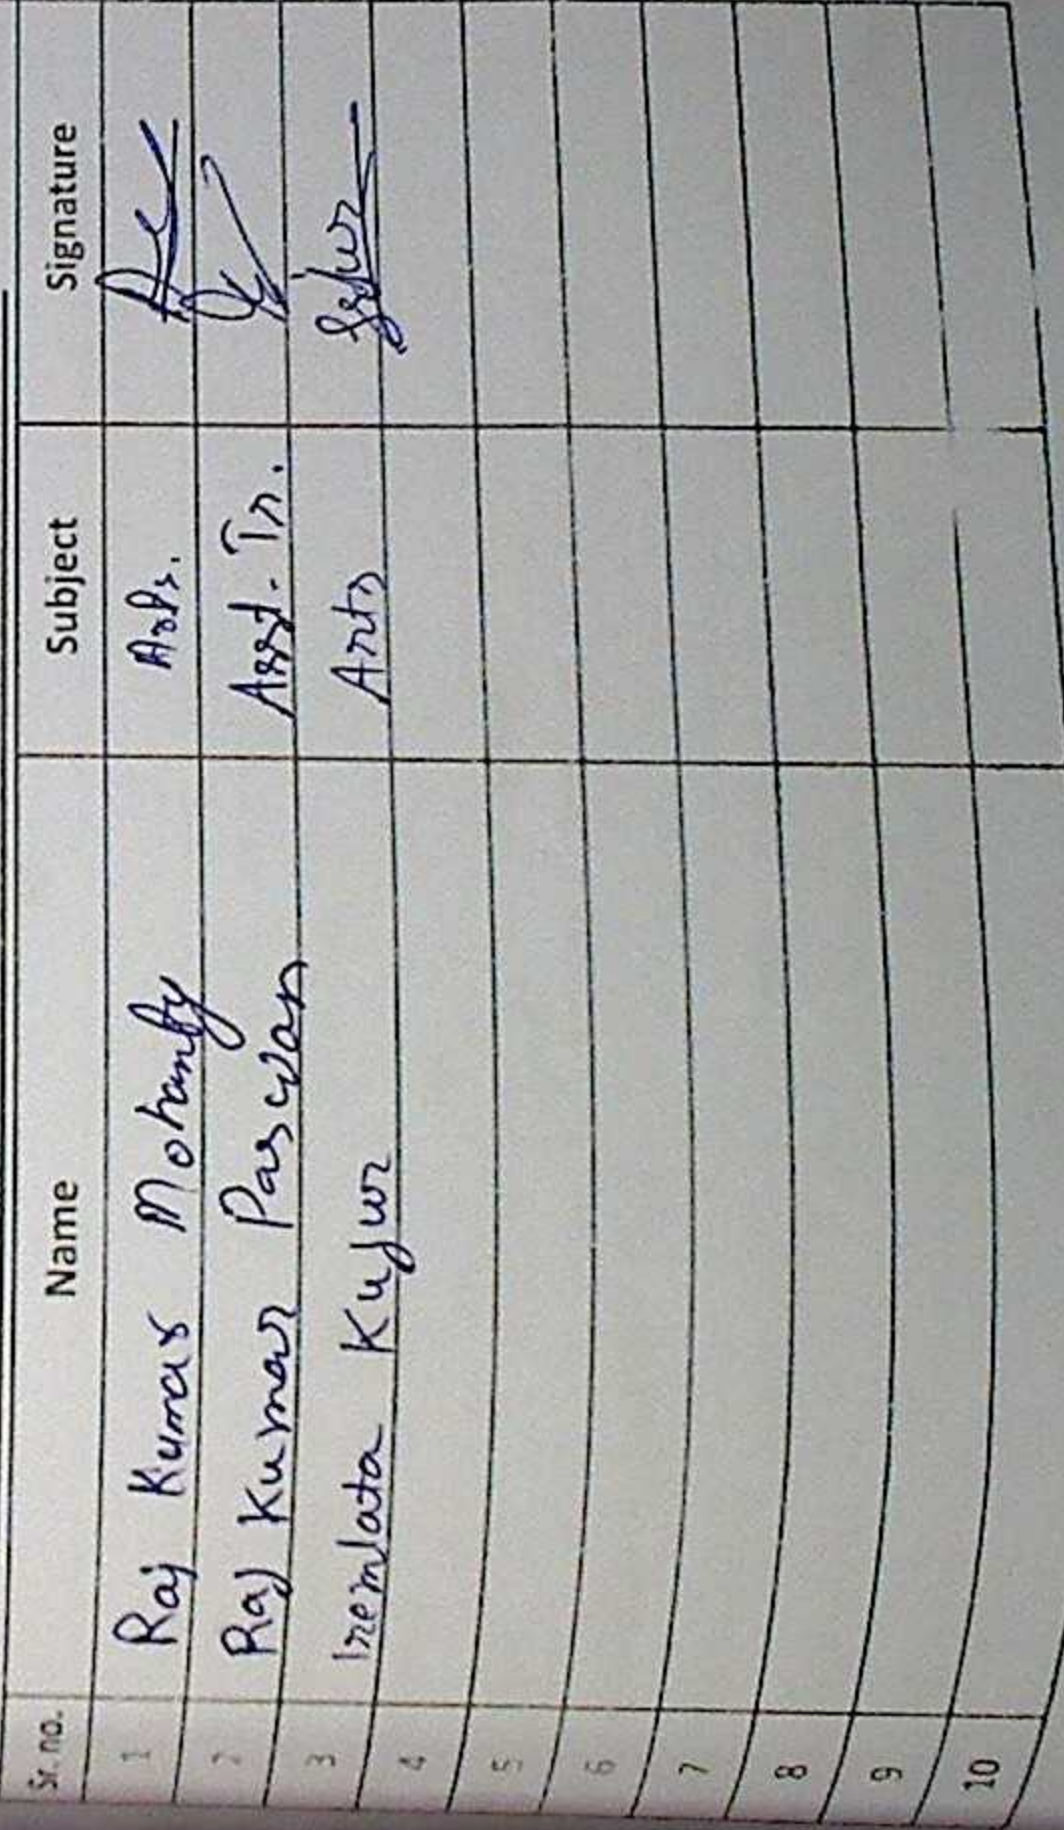 Sr. no. Name Subject Signature
1 Raj Kumar Mohanty Arts.
2 Raj Kumar Paswan Asst. Tr.
3 Kujur Arts
4
5
6
7
8
9
10